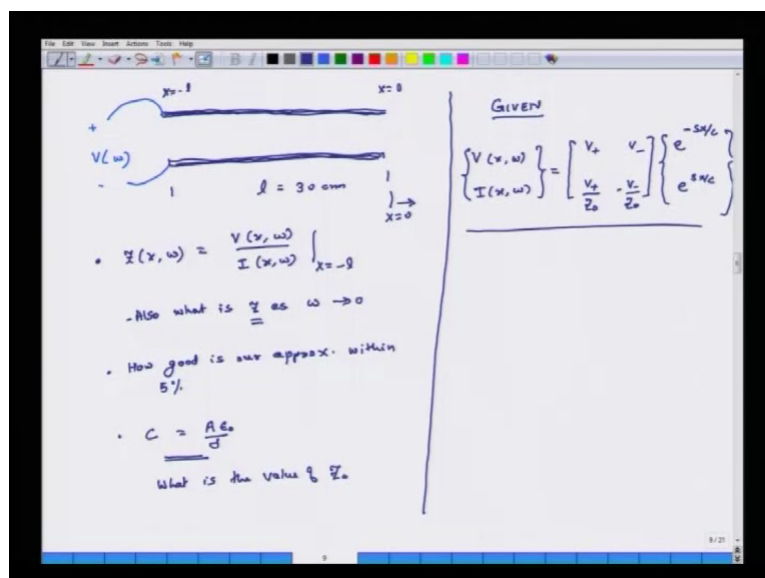 File Edit View Insert Actions Tools Help
x=-l x=0
+
V(ω)
-
l = 30 cm
x=0
• Z(x, ω) = V(x, ω) / I(x, ω) | x=-l
- Also what is Z as ω → 0
• How good is our approx. within
5%
• C = Aε₀ / d
What is the value of Z₀
GIVEN
{V(x, ω) I(x, ω)} = [V+ V- V+/Z₀ -V-/Z₀] {e^-sx/c e^sx/c}
9/21
9